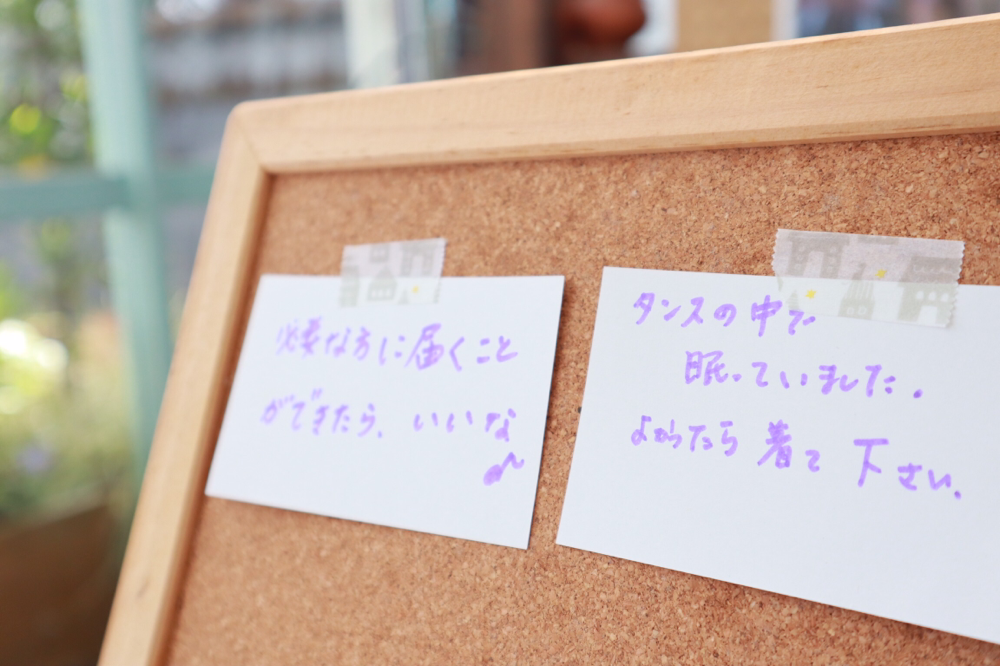 必要な方に届くこと
ができたら、いいな
♪
タンスの中で
眠っていました。
よかったら着て下さい。